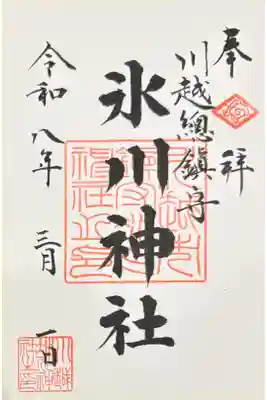 奉拜
川越總鎮守
氷川神社
令和八年 三月 一日